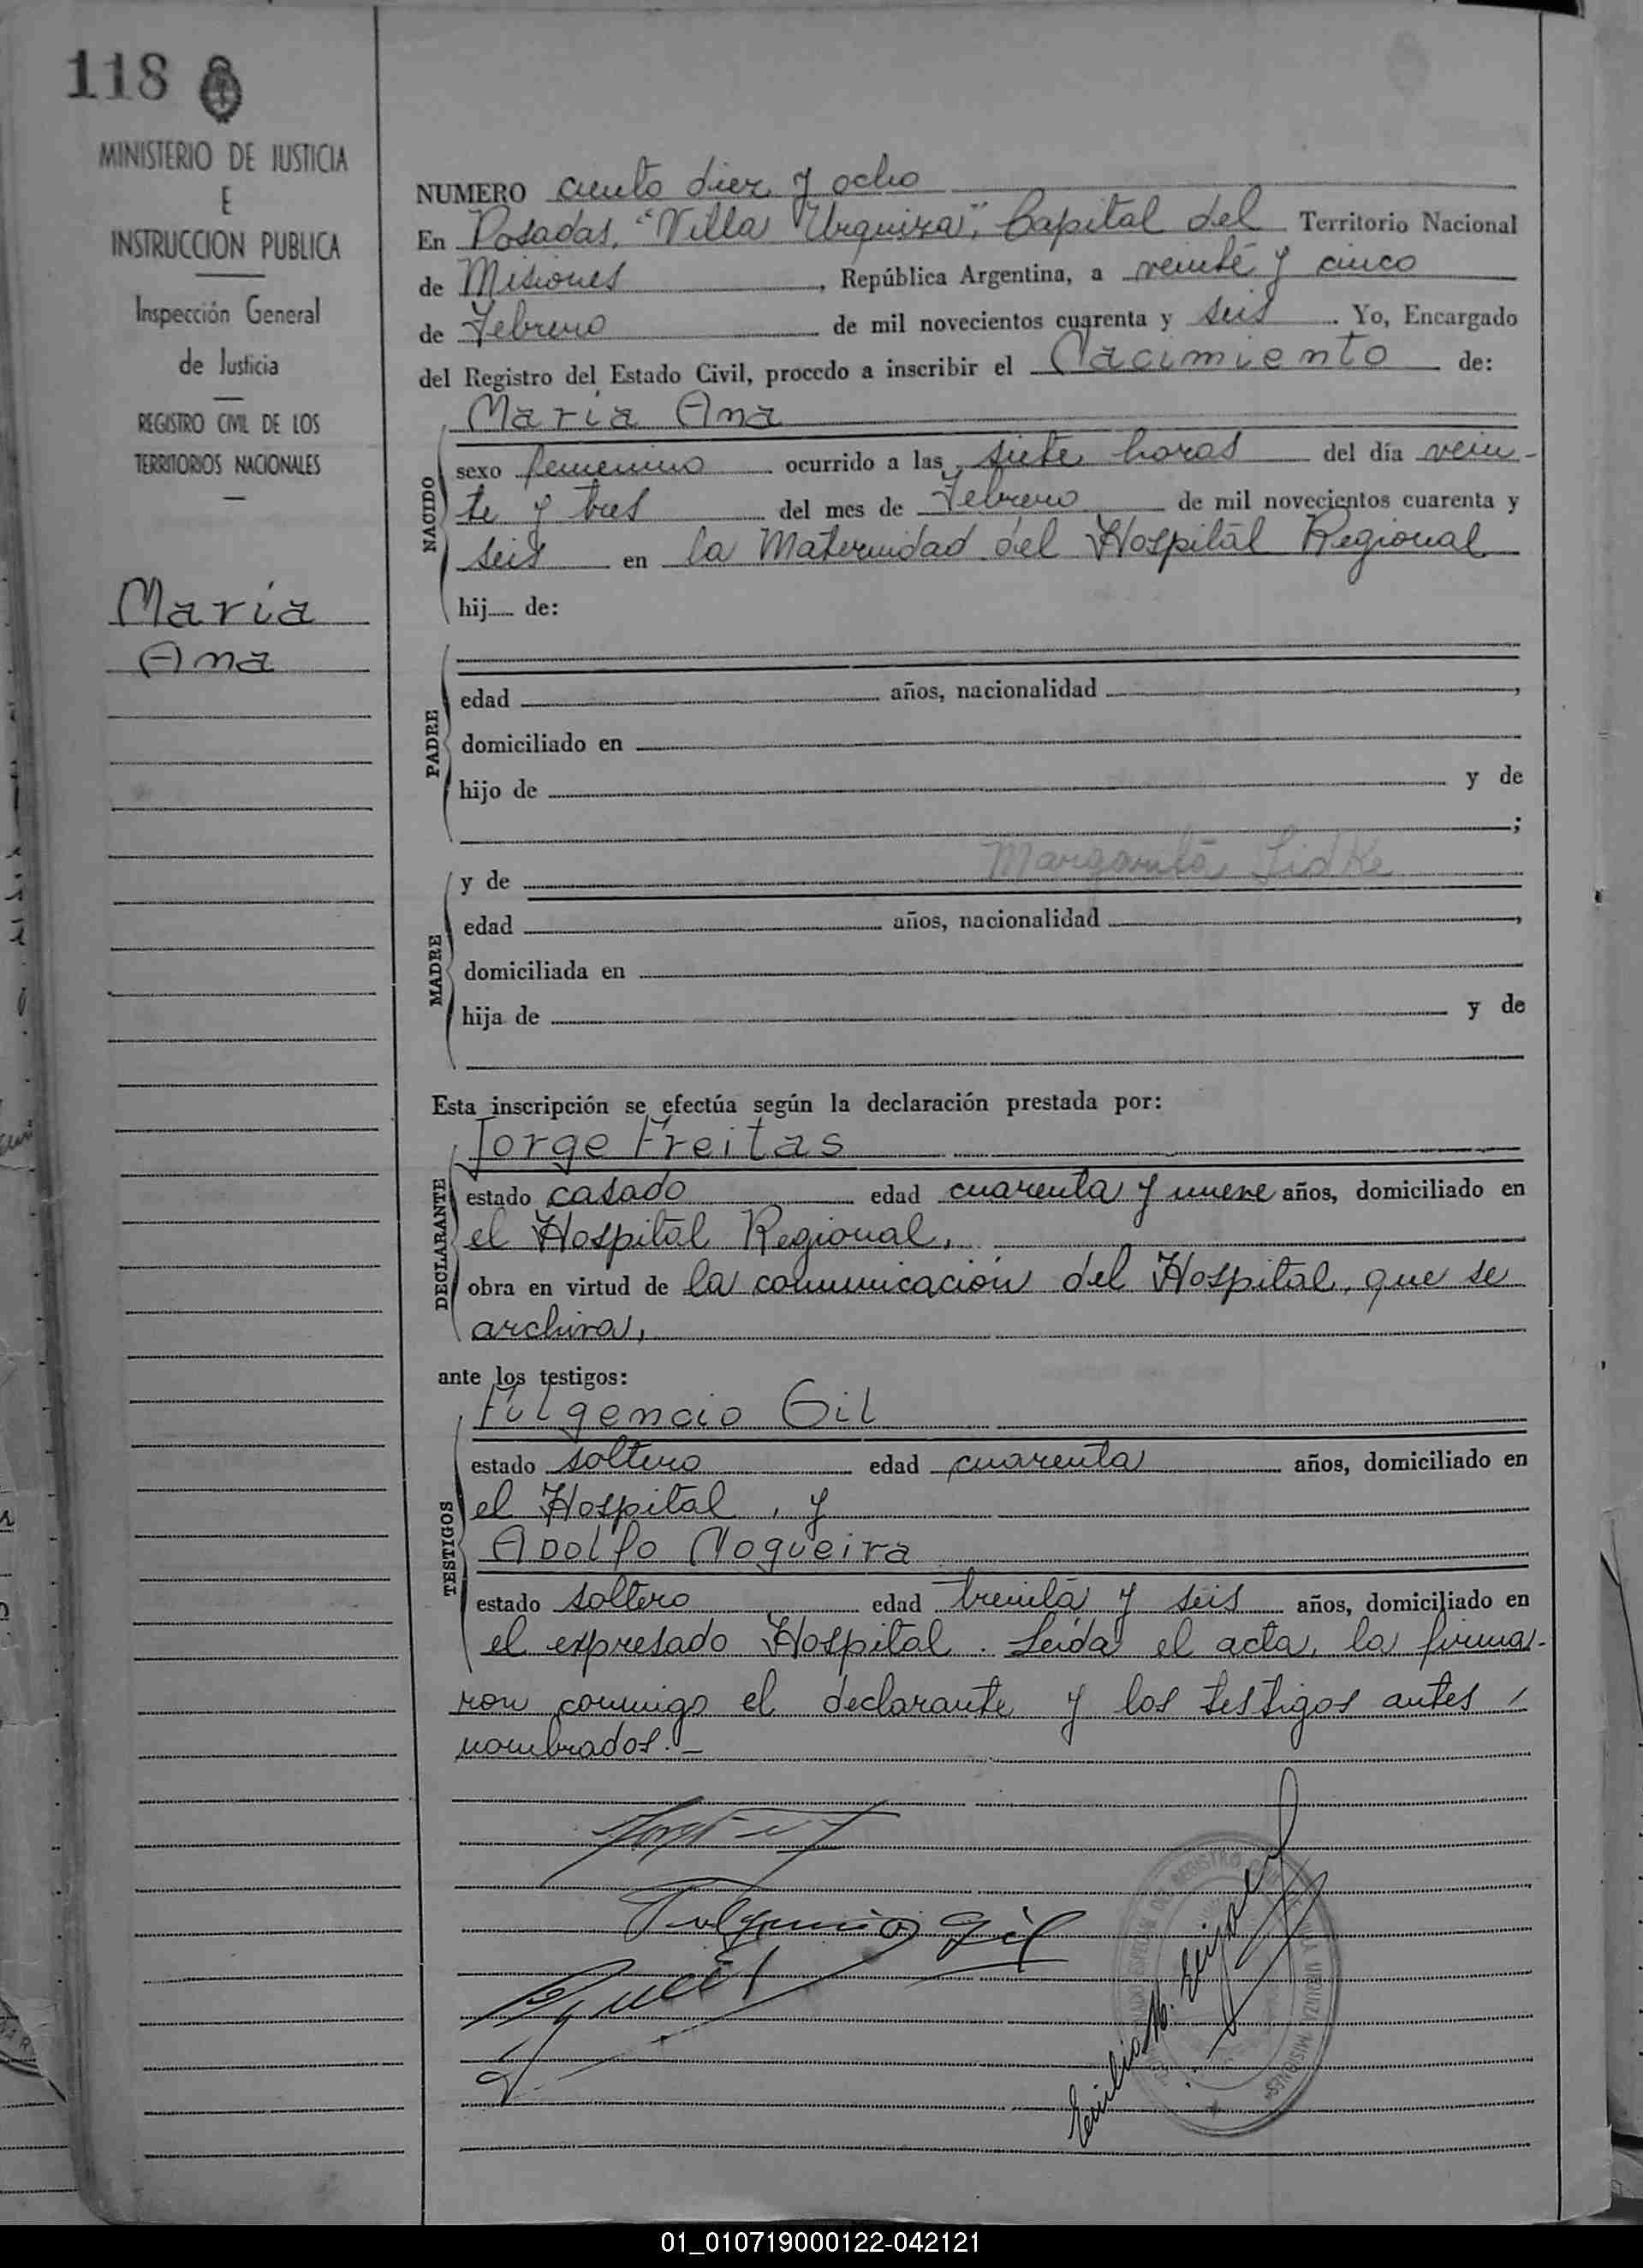 118
MINISTERIO DE JUSTICIA
E
INSTRUCCION PUBLICA
Inspección General
de Justicia
REGISTRO CIVIL DE LOS
TERRITORIOS NACIONALES
María
Ana
NUMERO ciento diez y ocho
En Posadas, "Villa Urquiza", Capital del Territorio Nacional
de Misiones, República Argentina, a veinte y cinco
de Febrero de mil novecientos cuarenta y seis. Yo, Encargado
del Registro del Estado Civil, procedo a inscribir el Nacimiento de:
NACIDO
María Ana
sexo femenino ocurrido a las siete horas del día vein-
te y tres del mes de Febrero de mil novecientos cuarenta y
seis en la Maternidad del Hospital Regional
hij..... de:
PADRE
edad años, nacionalidad ,
domiciliado en
hijo de y de
;
MADRE
y de Margarita Lidke
edad años, nacionalidad ,
domiciliada en
hija de y de
Esta inscripción se efectúa según la declaración prestada por:
DECLARANTE
Jorge Freitas
estado casado edad cuarenta y nueve años, domiciliado en
el Hospital Regional,
obra en virtud de la comunicación del Hospital, que se
archiva,
ante los testigos:
TESTIGOS
Fulgencio Gil
estado soltero edad cuarenta años, domiciliado en
el Hospital, y
Adolfo Nogueira
estado soltero edad treinta y seis años, domiciliado en
el expresado Hospital. Leída el acta, la firma-
ron conmigo el declarante y los testigos antes
nombrados.-
Fulgencio Gil
01_010719000122-042121